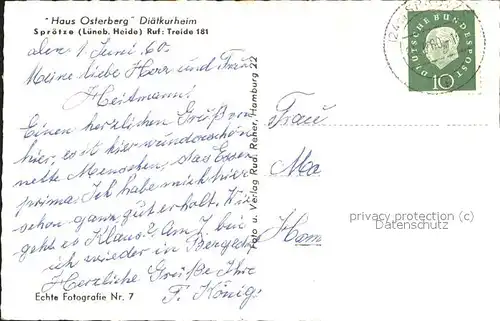 "Haus Osterberg" Diätkurheim
Sprötze (Lüneb. Heide) Ruf: Trelde 181
den 1. Juni 60.
Meine liebe Herr und Frau
Heitmann!
Einen herzlichen Gruß von
hier, es ist hier wunderschön
nette Menschen, das Essen
prima. Ich habe mich hier
schon ganz gut erholt. Wie
geht es Klaus? Am 7. bin
ich wieder in Bergedf.
Herzliche Grüße Ihre
F. König
Echte Fotografie Nr. 7
Foto u. Verlag Rud. Reher, Hamburg 22
DEUTSCHE BUNDESPOST
10
Frau
Ma
Ham
privacy protection (c)
Datenschutz